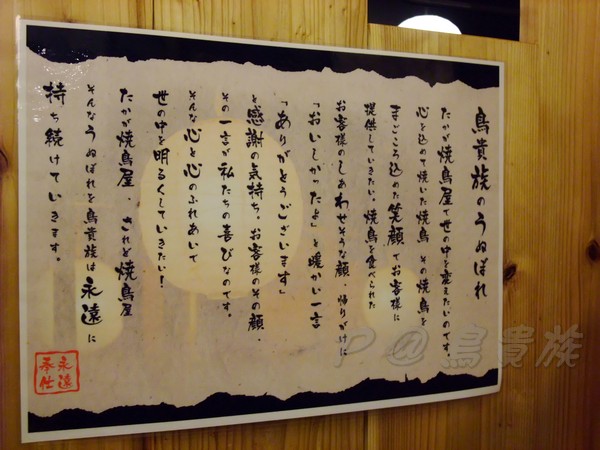 鳥貴族のうぬぼれ
たかが焼鳥屋で世の中を変えたいのです。
心を込めて焼いた焼鳥、その焼鳥を
まごころ込めた笑顔でお客様に
提供していきたい。焼鳥を食べられた
お客様のしあわせそうな顔、帰りがけに
「おいしかったよ」と暖かい一言
「ありがとうございます」
と感謝の気持ち、お客様のその顔、
その一言が私たちの喜びなのです。
そんな心と心のふれあいで
世の中を明るくしていきたい！
たかが焼鳥屋、されど焼鳥屋
そんなうぬぼれを鳥貴族は永遠に
持ち続けていきます。
永遠
奉仕
P@鳥貴族